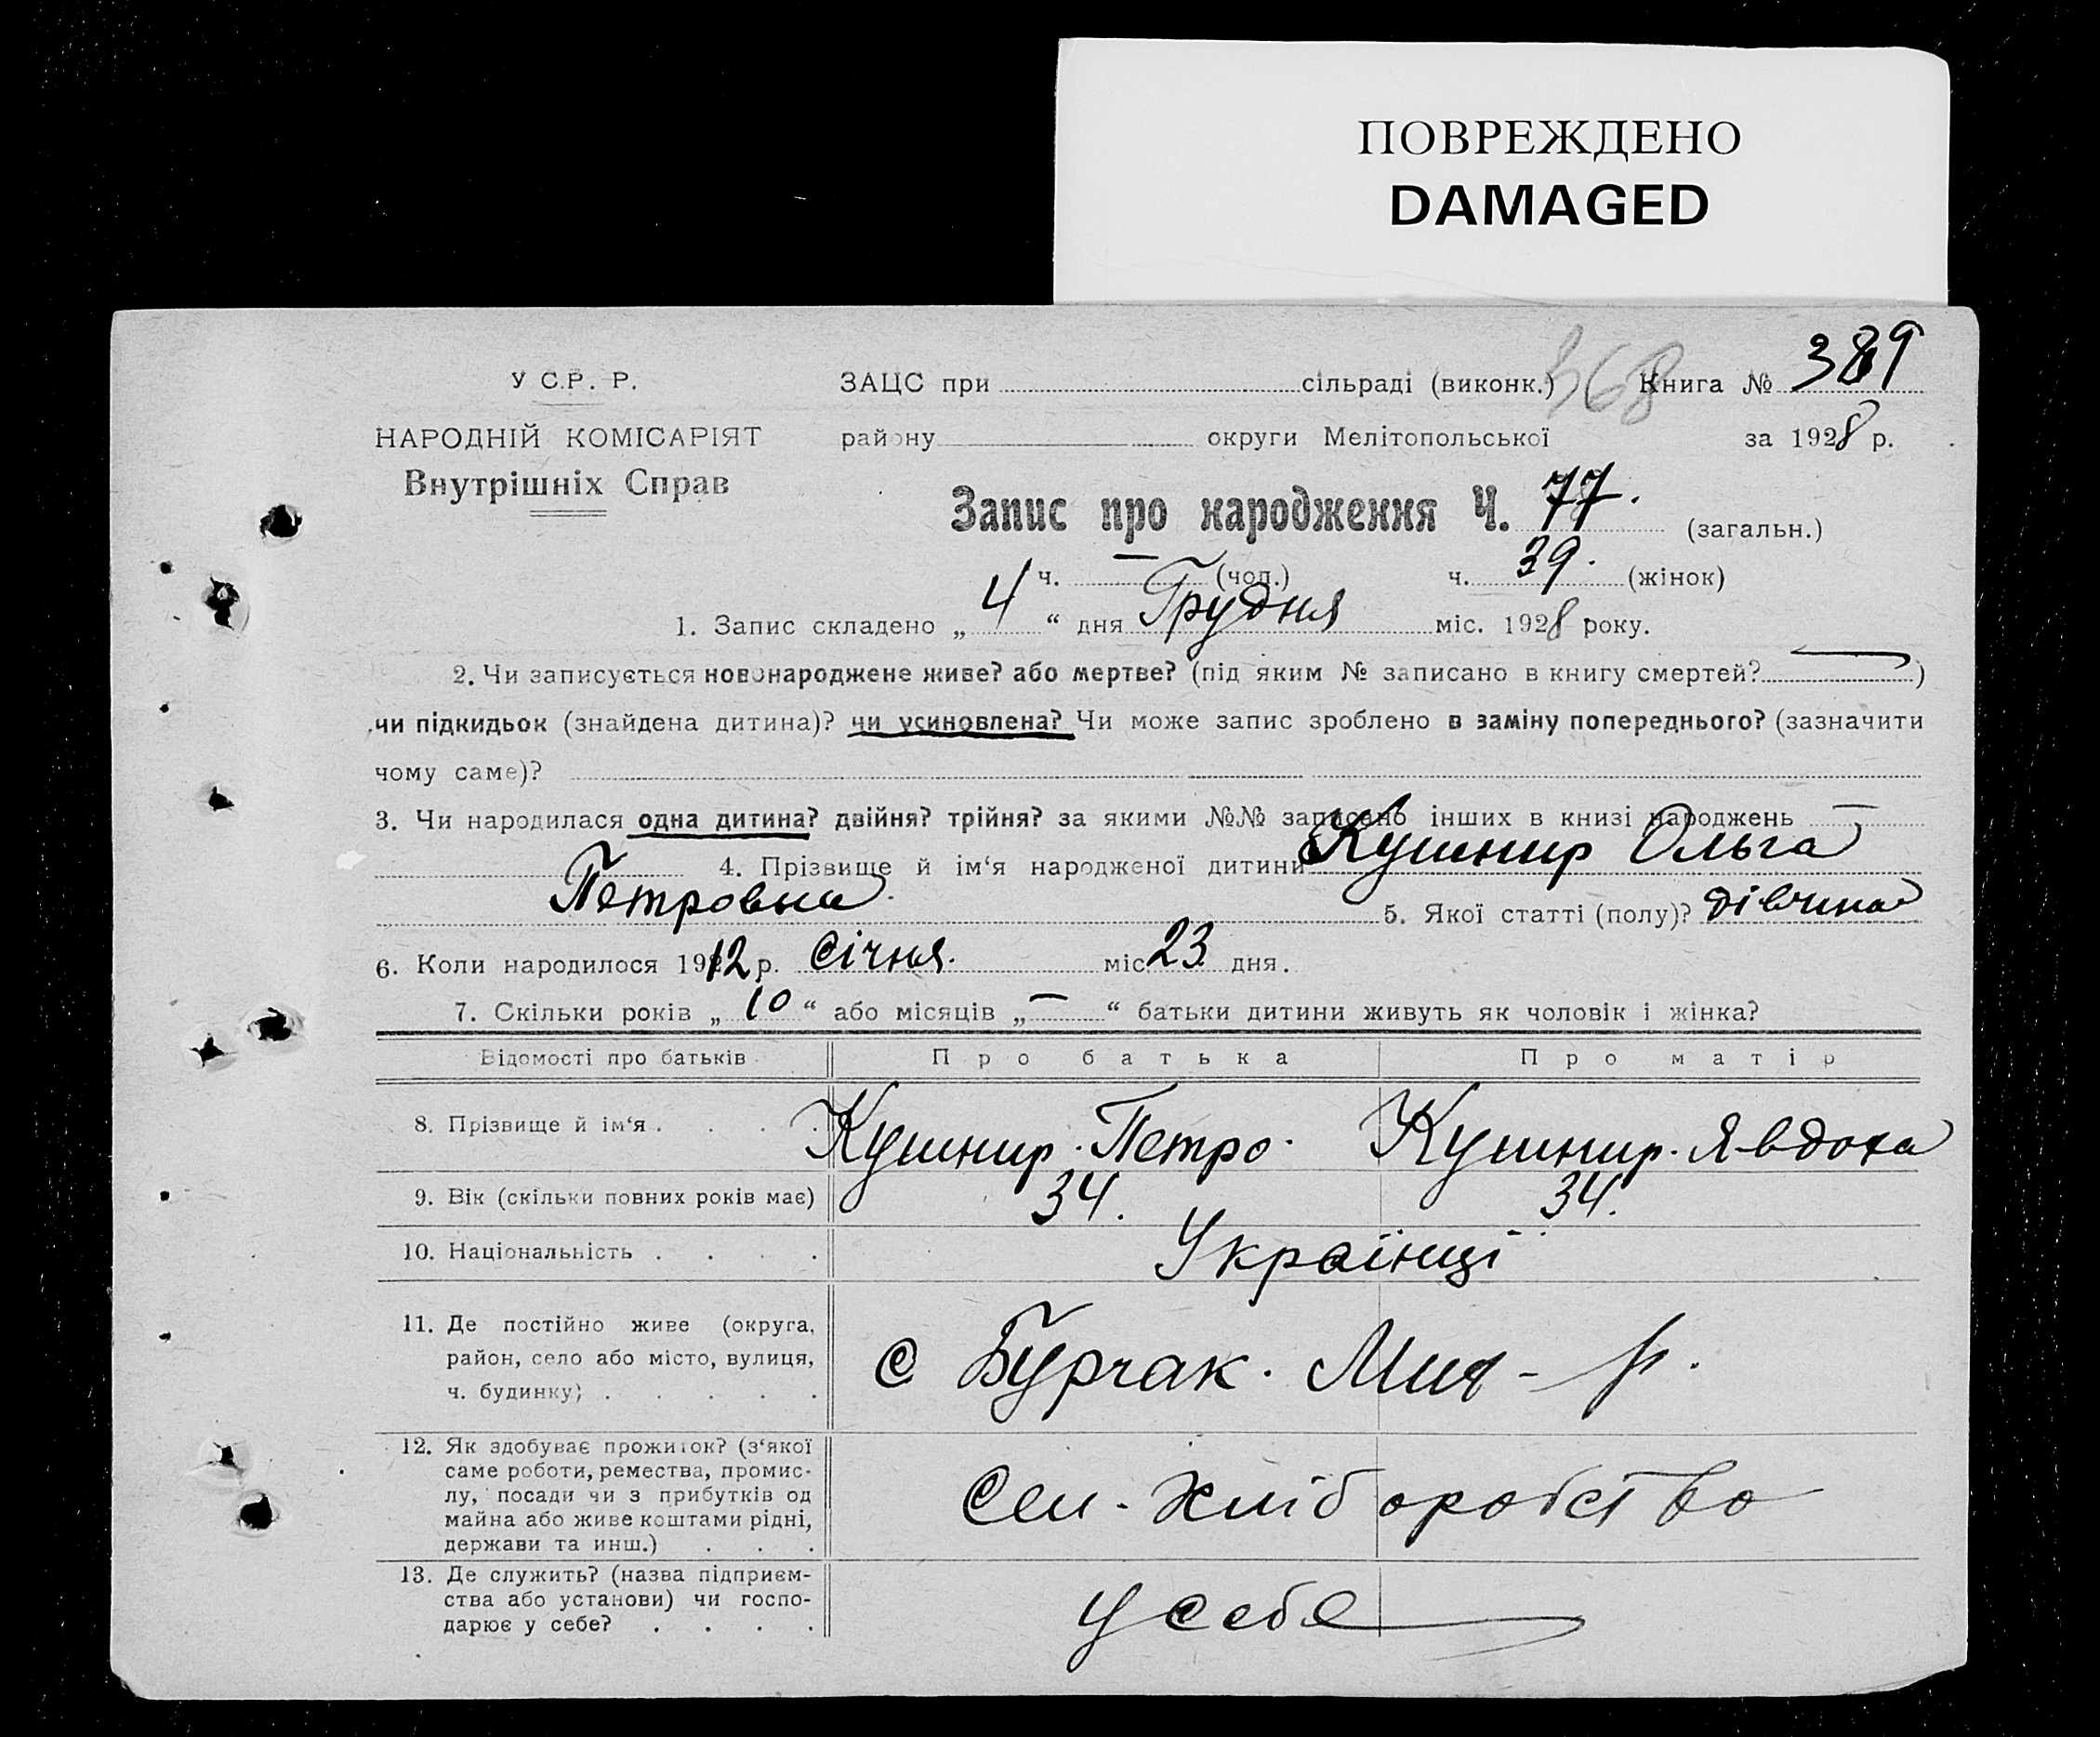 ПОВРЕЖДЕНО
DAMAGED
У С.Р. Р.
ЗАЦС при сільраді (виконк.) 368 Книга № 389
НАРОДНІЙ КОМІСАРІЯТ
району округи Мелітопольської за 1928 р.
Внутрішніх Справ
Запис про народження Ч. 77. (загальн.)
ч. — (чол.) ч. 39. (жінок)
1. Запис складено „ 4 “ дня Грудня міс. 1928 року.
2. Чи записується новонароджене живе? або мертве? (під яким № записано в книгу смертей? — )
чи підкидьок (знайдена дитина)? чи усиновлена? Чи може запис зроблено в заміну попереднього? (зазначити
чому саме)?
3. Чи народилася одна дитина? двійня? трійня? за якими №№ записано інших в книзі народжень —
4. Прізвище й ім‘я народженої дитини Кушнир Ольга
Петровна. 5. Якої статті (полу)? дівчина
6. Коли народилося 1912 р. Січня. міс 23 дня.
7. Скільки років „ 10 “ або місяців „ — “ батьки дитини живуть як чоловік і жінка?
Відомості про батьків Про батька Про матір
8. Прізвище й ім‘я . . . . Кушнир. Петро. Кушнир. Явдоха
9. Вік (скільки повних років має) 34. 34.
10. Національність . . . . Українці
11. Де постійно живе (округа,
район, село або місто, вулиця,
ч. будинку) . . . . .
с Бурчак. Мих - р.
12. Як здобуває прожиток? (з‘якої
саме роботи, ремества, промис-
лу, посади чи з прибутків од
майна або живе коштами рідні,
держави та инш.) . . .
Сел - хліборобство
13. Де служить? (назва підприєм-
ства або установи) чи госпо-
дарює у себе? . . . .
у себе